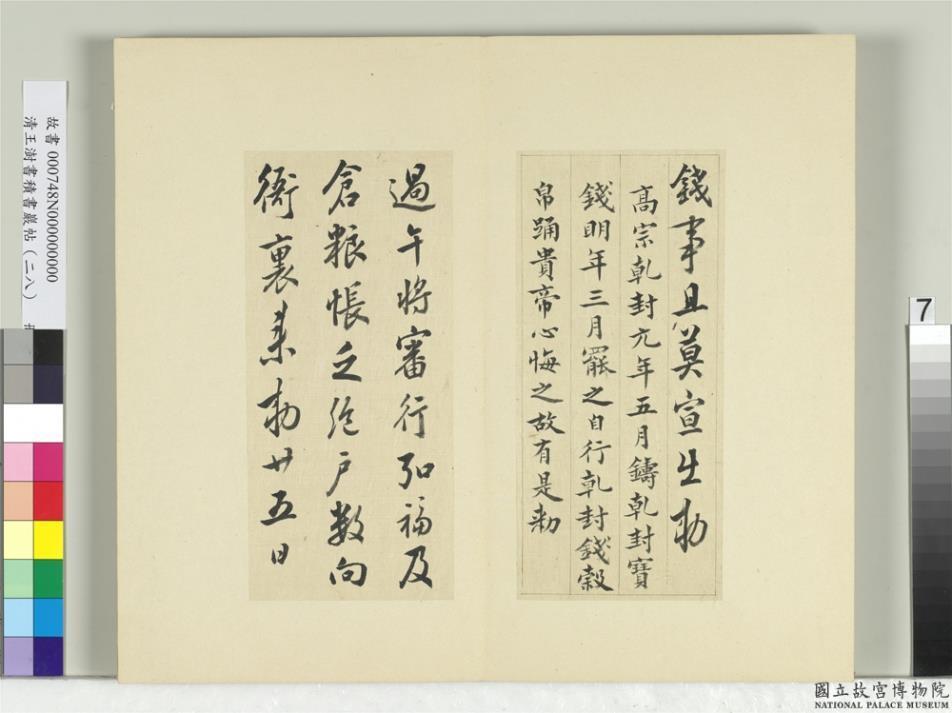 錢事且莫宣出勅
高宗乾封元年五月鑄乾封寶
錢明年三月罷之自行乾封錢穀
帛踊貴帝心悔之故有是勅
過午將審行弘福及
倉粮帳之絕戶數向
衙裏来勅廿五日
故書 000748N000000000
清王澍書積書巖帖(二八)
7
國立故宮博物院
NATIONAL PALACE MUSEUM